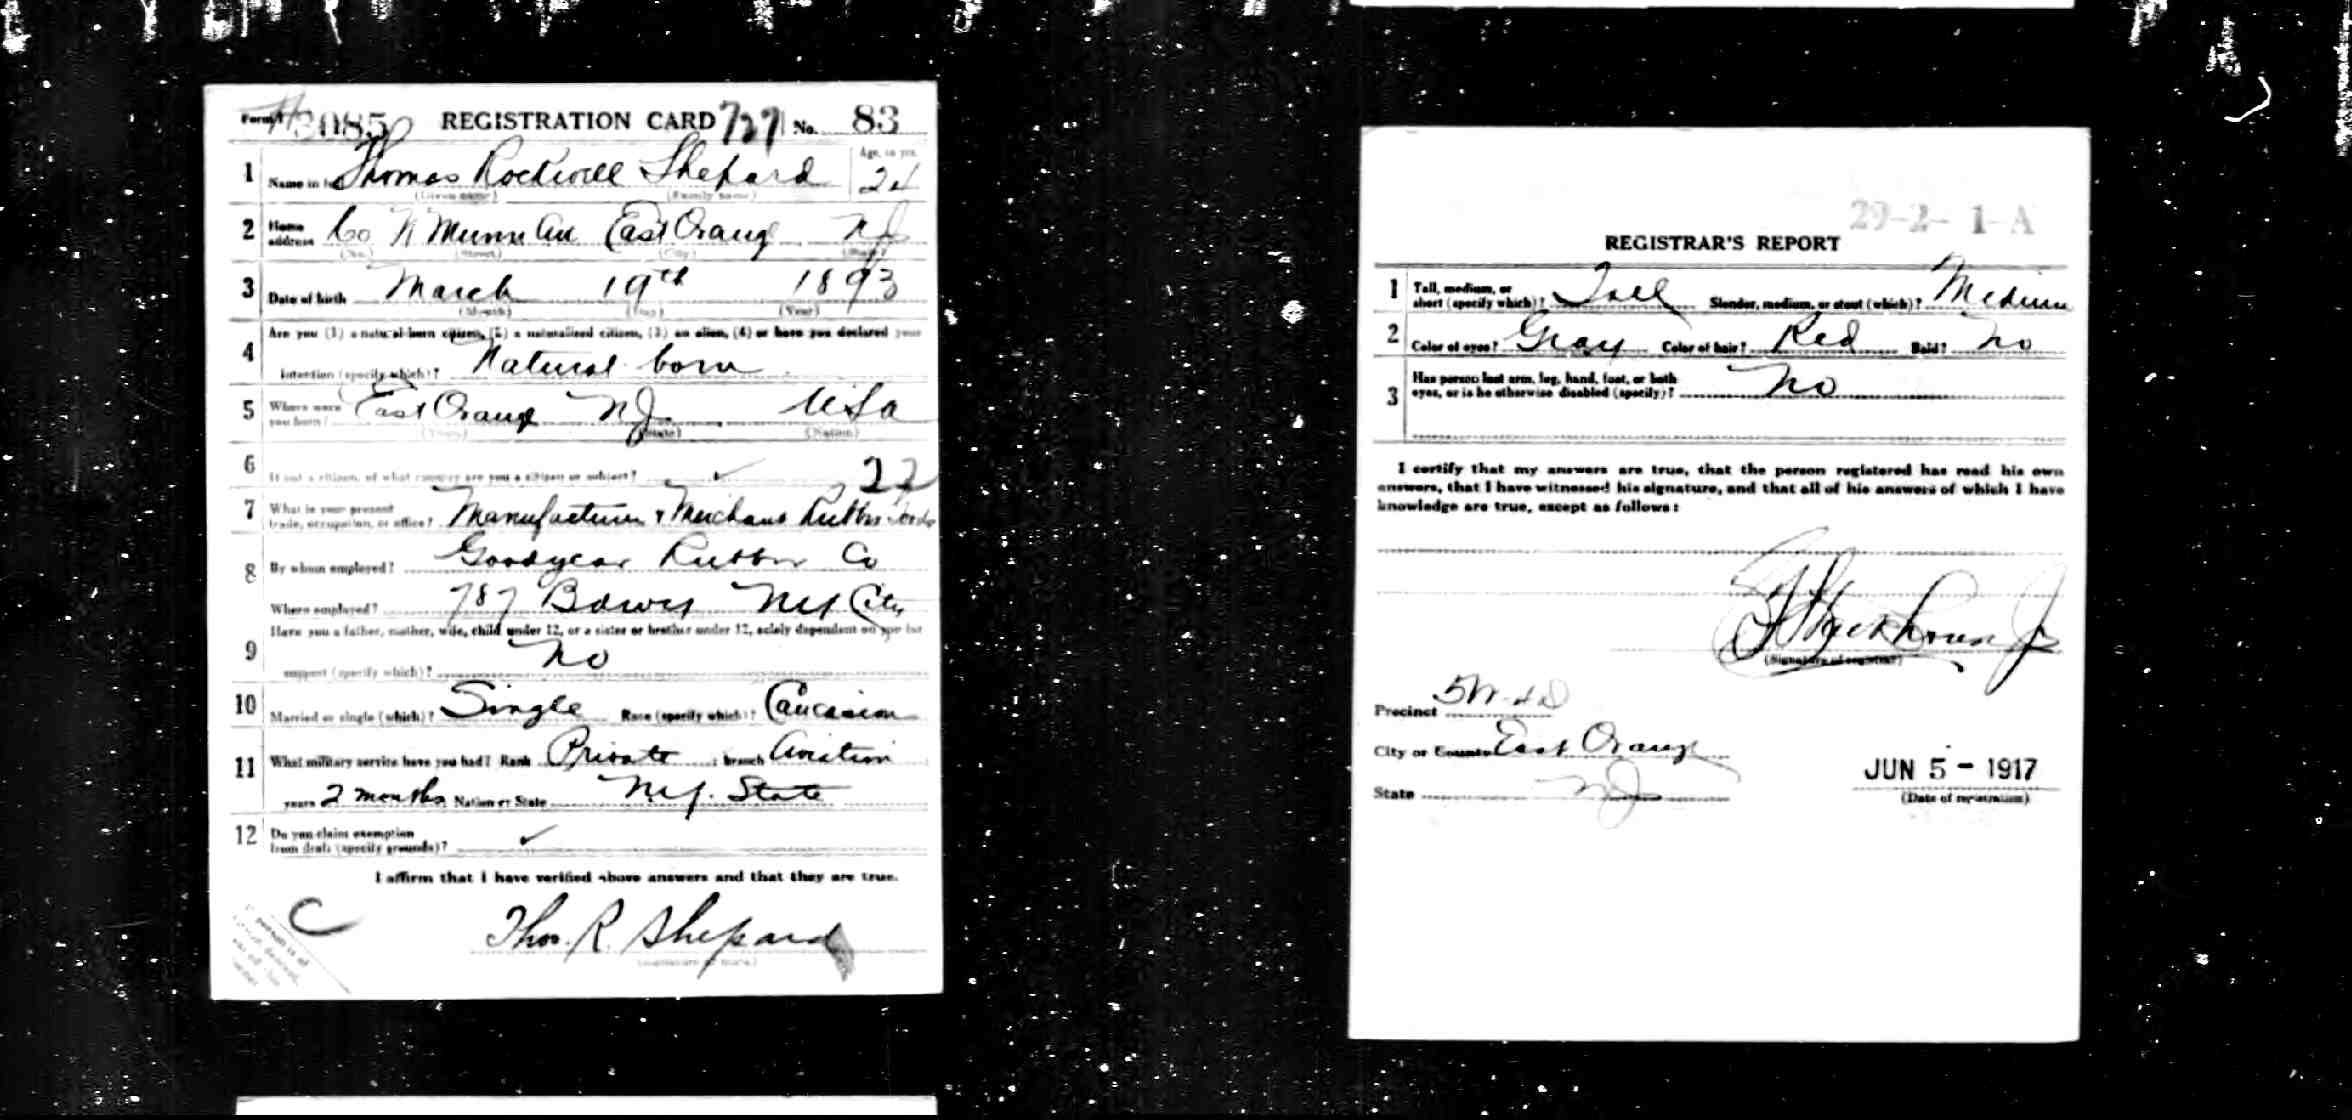 Form 1 3085 REGISTRATION CARD 727 No. 83
1 Name in full Thomas Rockwell Shepard Age, in yrs. 24
(Given name) (Family name)
2 Home address 60 N Munn Ave East Orange NJ
(No.) (Street) (City) (State)
3 Date of birth March 19th 1893
(Month) (Day) (Year)
4 Are you (1) a natural-born citizen, (2) a naturalized citizen, (3) an alien, (4) or have you declared your
intention (specify which)? Natural born
5 Where were you born? East Orange NJ USA
(Town) (State) (Nation)
6 If not a citizen, of what country are you a citizen or subject? ✓ 22
7 What is your present trade, occupation, or office? Manufacturer & Merchant Rubber Goods
8 By whom employed? Goodyear Rubber Co
Where employed? 787 Bdwy NY City
9 Have you a father, mother, wife, child under 12, or a sister or brother under 12, solely dependent on you for
support (specify which)? No
10 Married or single (which)? Single Race (specify which)? Caucasian
11 What military service have you had? Rank Private ; branch Aviation
years 2 months Nation or State N.Y. State
12 Do you claim exemption from draft (specify grounds)? ✓
I affirm that I have verified above answers and that they are true.
C
Thos. R. Shepard
(Signature or mark)
29-2-1-A
REGISTRAR'S REPORT
1 Tall, medium, or short (specify which)? Tall Slender, medium, or stout (which)? Medium
2 Color of eyes? Gray Color of hair? Red Bald? No
3 Has person lost arm, leg, hand, foot, or both eyes, or is he otherwise disabled (specify)? No
I certify that my answers are true, that the person registered has read his own
answers, that I have witnessed his signature, and that all of his answers of which I have
knowledge are true, except as follows:
(Signature of registrar)
Precinct 5W-4D
City or County East Orange
State NJ
JUN 5 - 1917
(Date of registration)